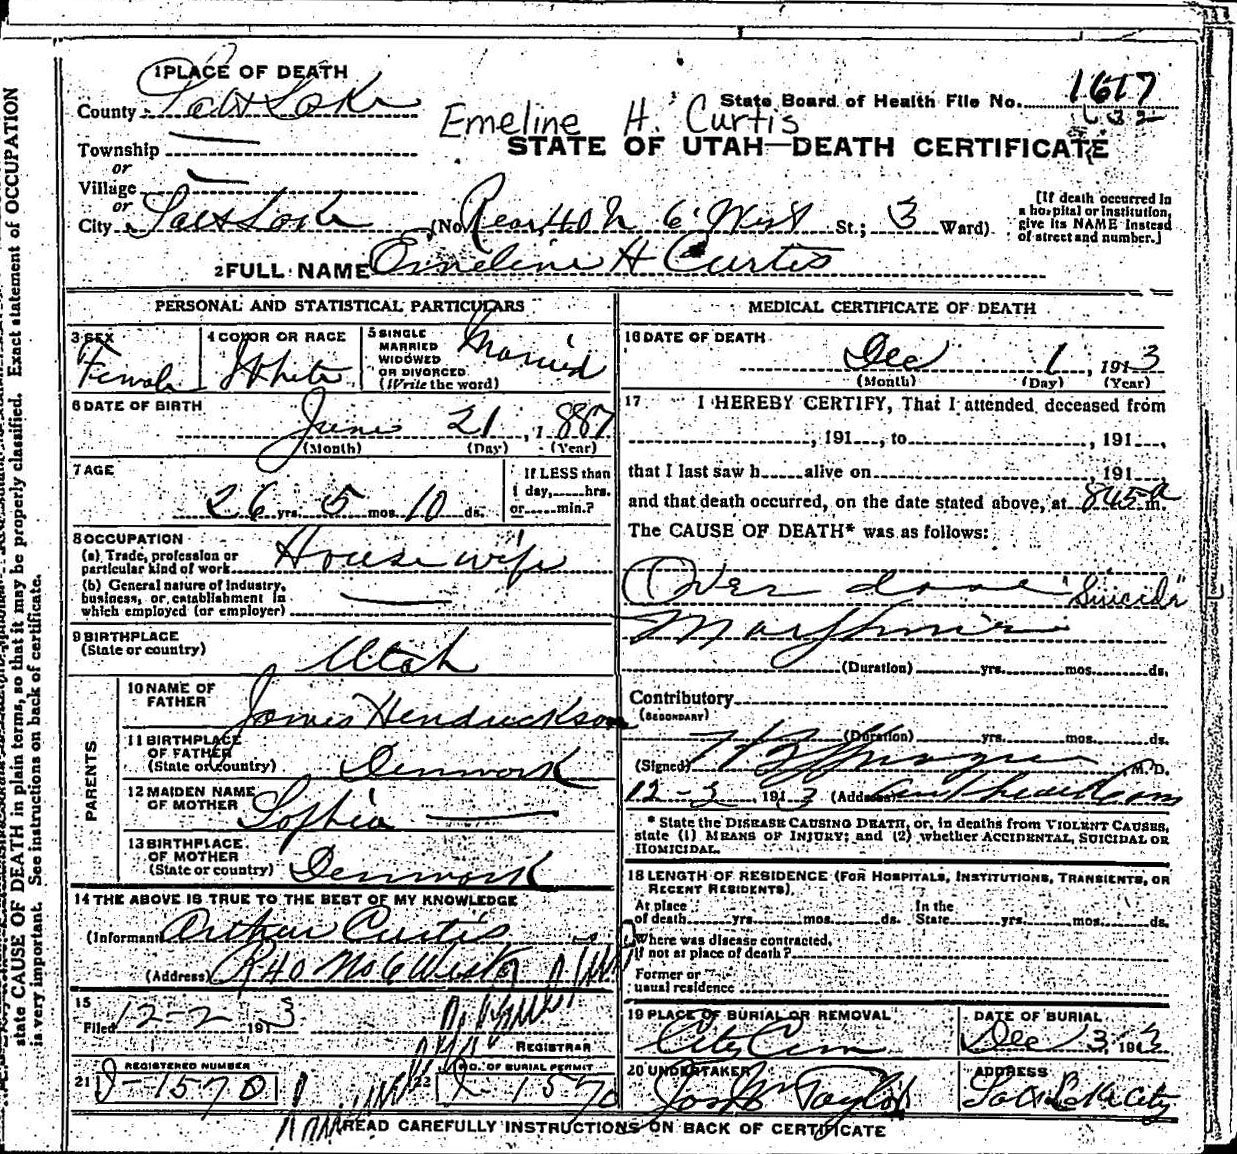 1 PLACE OF DEATH
County Salt Lake
State Board of Health File No. 1617
Emeline H. Curtis
STATE OF UTAH—DEATH CERTIFICATE
Township
or
Village
or
City Salt Lake (No. Rear 40 N 6 West St.; 3 Ward)
[If death occurred in a hospital or institution, give its NAME instead of street and number.]
2 FULL NAME Emeline H Curtis
PERSONAL AND STATISTICAL PARTICULARS
3 SEX
Female
4 COLOR OR RACE
White
5 SINGLE
MARRIED
WIDOWED
OR DIVORCED
(Write the word)
Married
6 DATE OF BIRTH
June 21, 1887
(Month) (Day) (Year)
7 AGE
26 yrs. 5 mos. 10 ds.
If LESS than
1 day, hrs.
or min.?
8 OCCUPATION
(a) Trade, profession or
particular kind of work House wife
(b) General nature of industry,
business, or establishment in
which employed (or employer)
9 BIRTHPLACE
(State or country)
Utah
PARENTS
10 NAME OF
FATHER
James Hendrickson
11 BIRTHPLACE
OF FATHER
(State or country) Denmark
12 MAIDEN NAME
OF MOTHER Sophia
13 BIRTHPLACE
OF MOTHER
(State or country) Denmark
14 THE ABOVE IS TRUE TO THE BEST OF MY KNOWLEDGE
(Informant Arthur Curtis
(Address) R 40 No 6 West
15
Filed 12-2 1913
REGISTRAR
REGISTERED NUMBER
21 1570
22 NO. OF BURIAL PERMIT
1570
MEDICAL CERTIFICATE OF DEATH
16 DATE OF DEATH
Dec 1, 1913
(Month) (Day) (Year)
17 I HEREBY CERTIFY, That I attended deceased from
, 191 , to , 191 ,
that I last saw h alive on 191
and that death occurred, on the date stated above, at 845 a m.
The CAUSE OF DEATH* was as follows:
Over dose "Suicide"
Morphine
(Duration) yrs. mos. ds.
Contributory
(SECONDARY)
(Duration) yrs. mos. ds.
(Signed) M.D.
12-2, 1913 (Address)
* State the DISEASE CAUSING DEATH, or, in deaths from VIOLENT CAUSES,
state (1) MEANS OF INJURY; and (2) whether ACCIDENTAL, SUICIDAL OR
HOMICIDAL.
18 LENGTH OF RESIDENCE (FOR HOSPITALS, INSTITUTIONS, TRANSIENTS, OR
RECENT RESIDENTS).
At place In the
of death yrs. mos. ds. State yrs. mos. ds.
Where was disease contracted,
if not at place of death?
Former or
usual residence
19 PLACE OF BURIAL OR REMOVAL
City Cem
DATE OF BURIAL
Dec 3, 1913
20 UNDERTAKER
Jos Wm Taylor
ADDRESS
Salt Lake City
READ CAREFULLY INSTRUCTIONS ON BACK OF CERTIFICATE
state CAUSE OF DEATH in plain terms, so that it may be properly classified. Exact statement of OCCUPATION
is very important. See instructions on back of certificate.